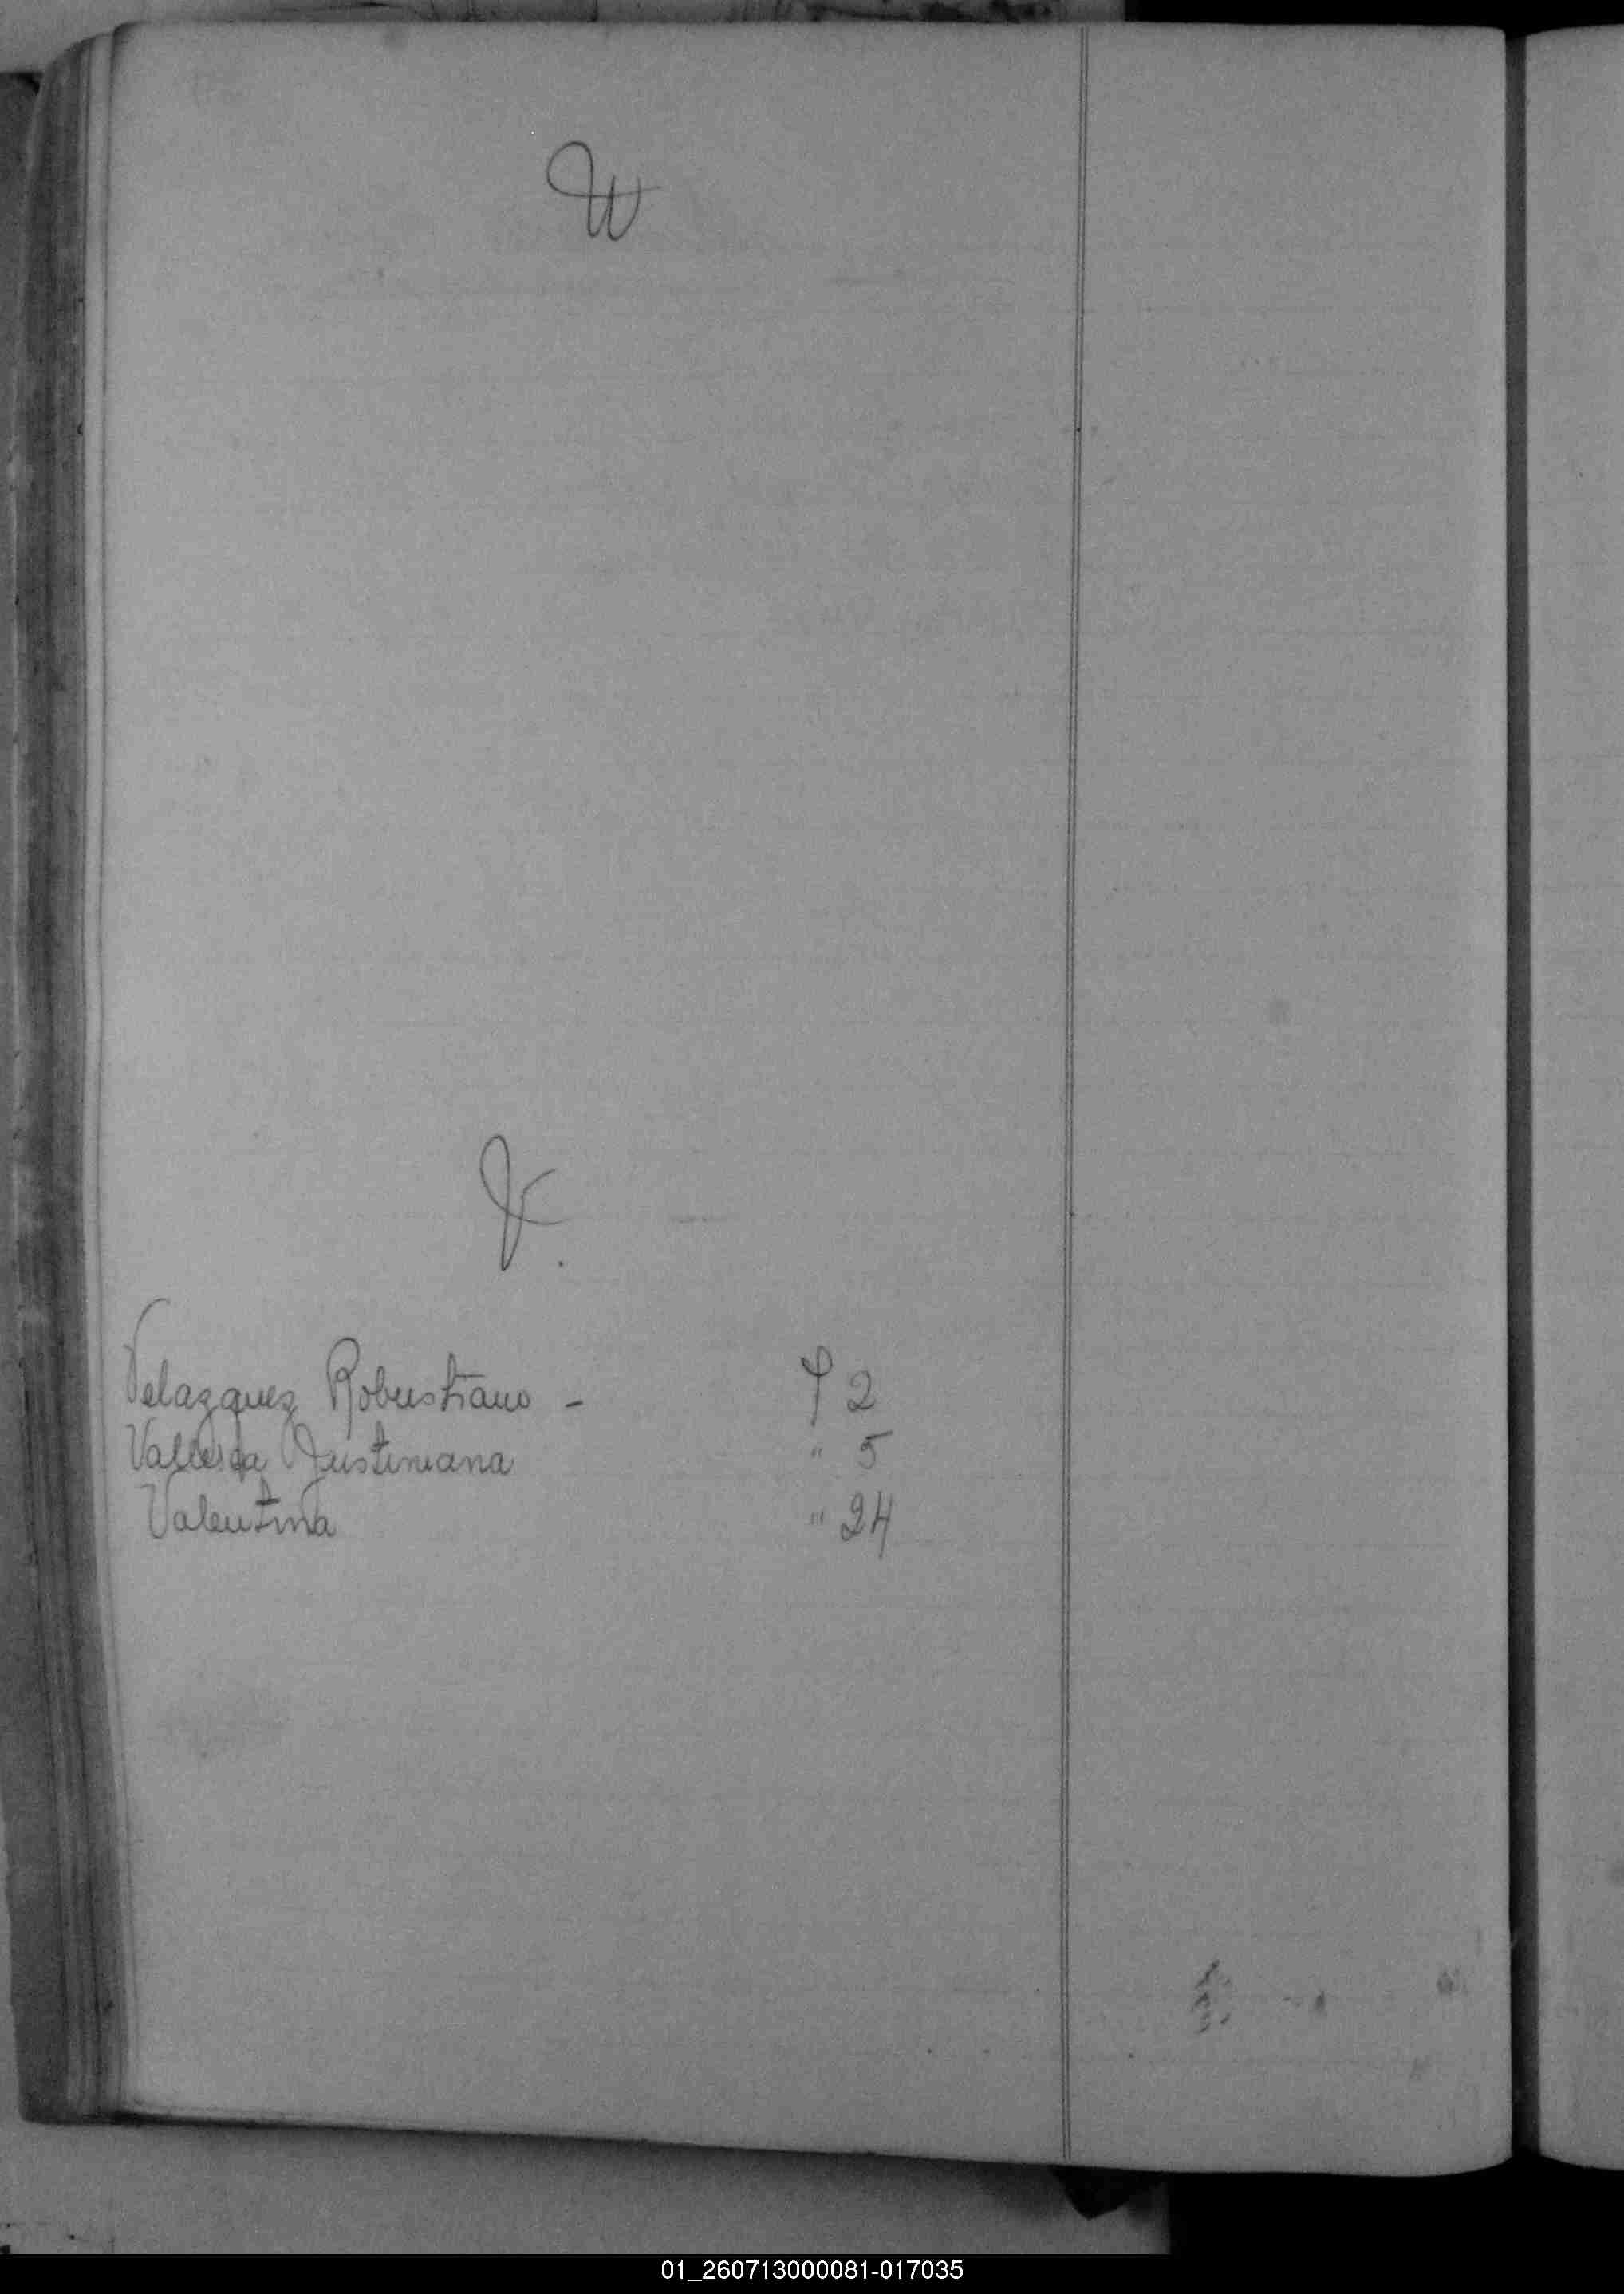 W
V.
Velazquez Robustiano - P 2
Justiniana " 5
Valentina " 24
01_260713000081-017035